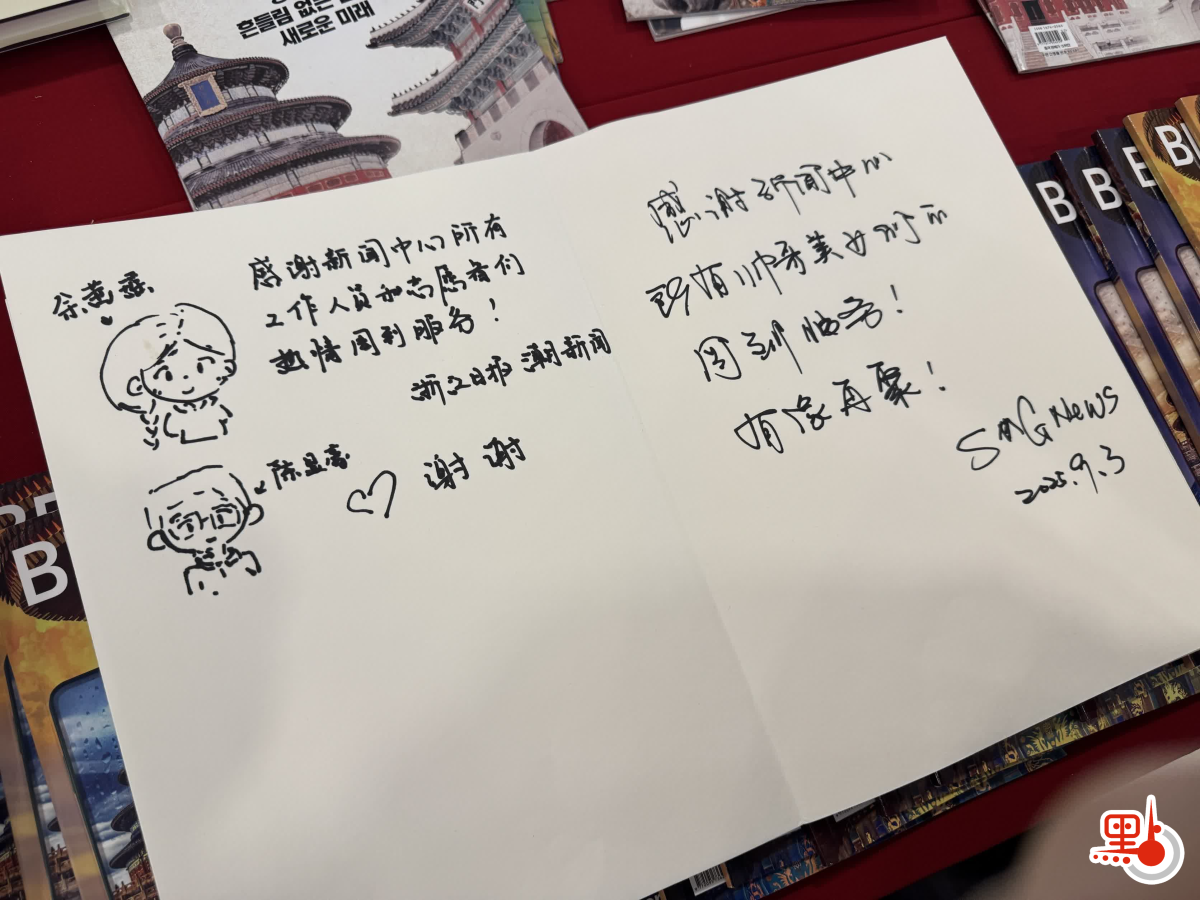 흔들림 없는
새로운 미래
感谢新闻中心所有
工作人员和志愿者们
热情周到服务！
浙江日报 潮新闻
陈显豪
谢谢
感谢新闻中心
所有帅哥美女
周到服务！
有缘再聚！
SMG News
2025.9.3
B
B
B
B
B
點